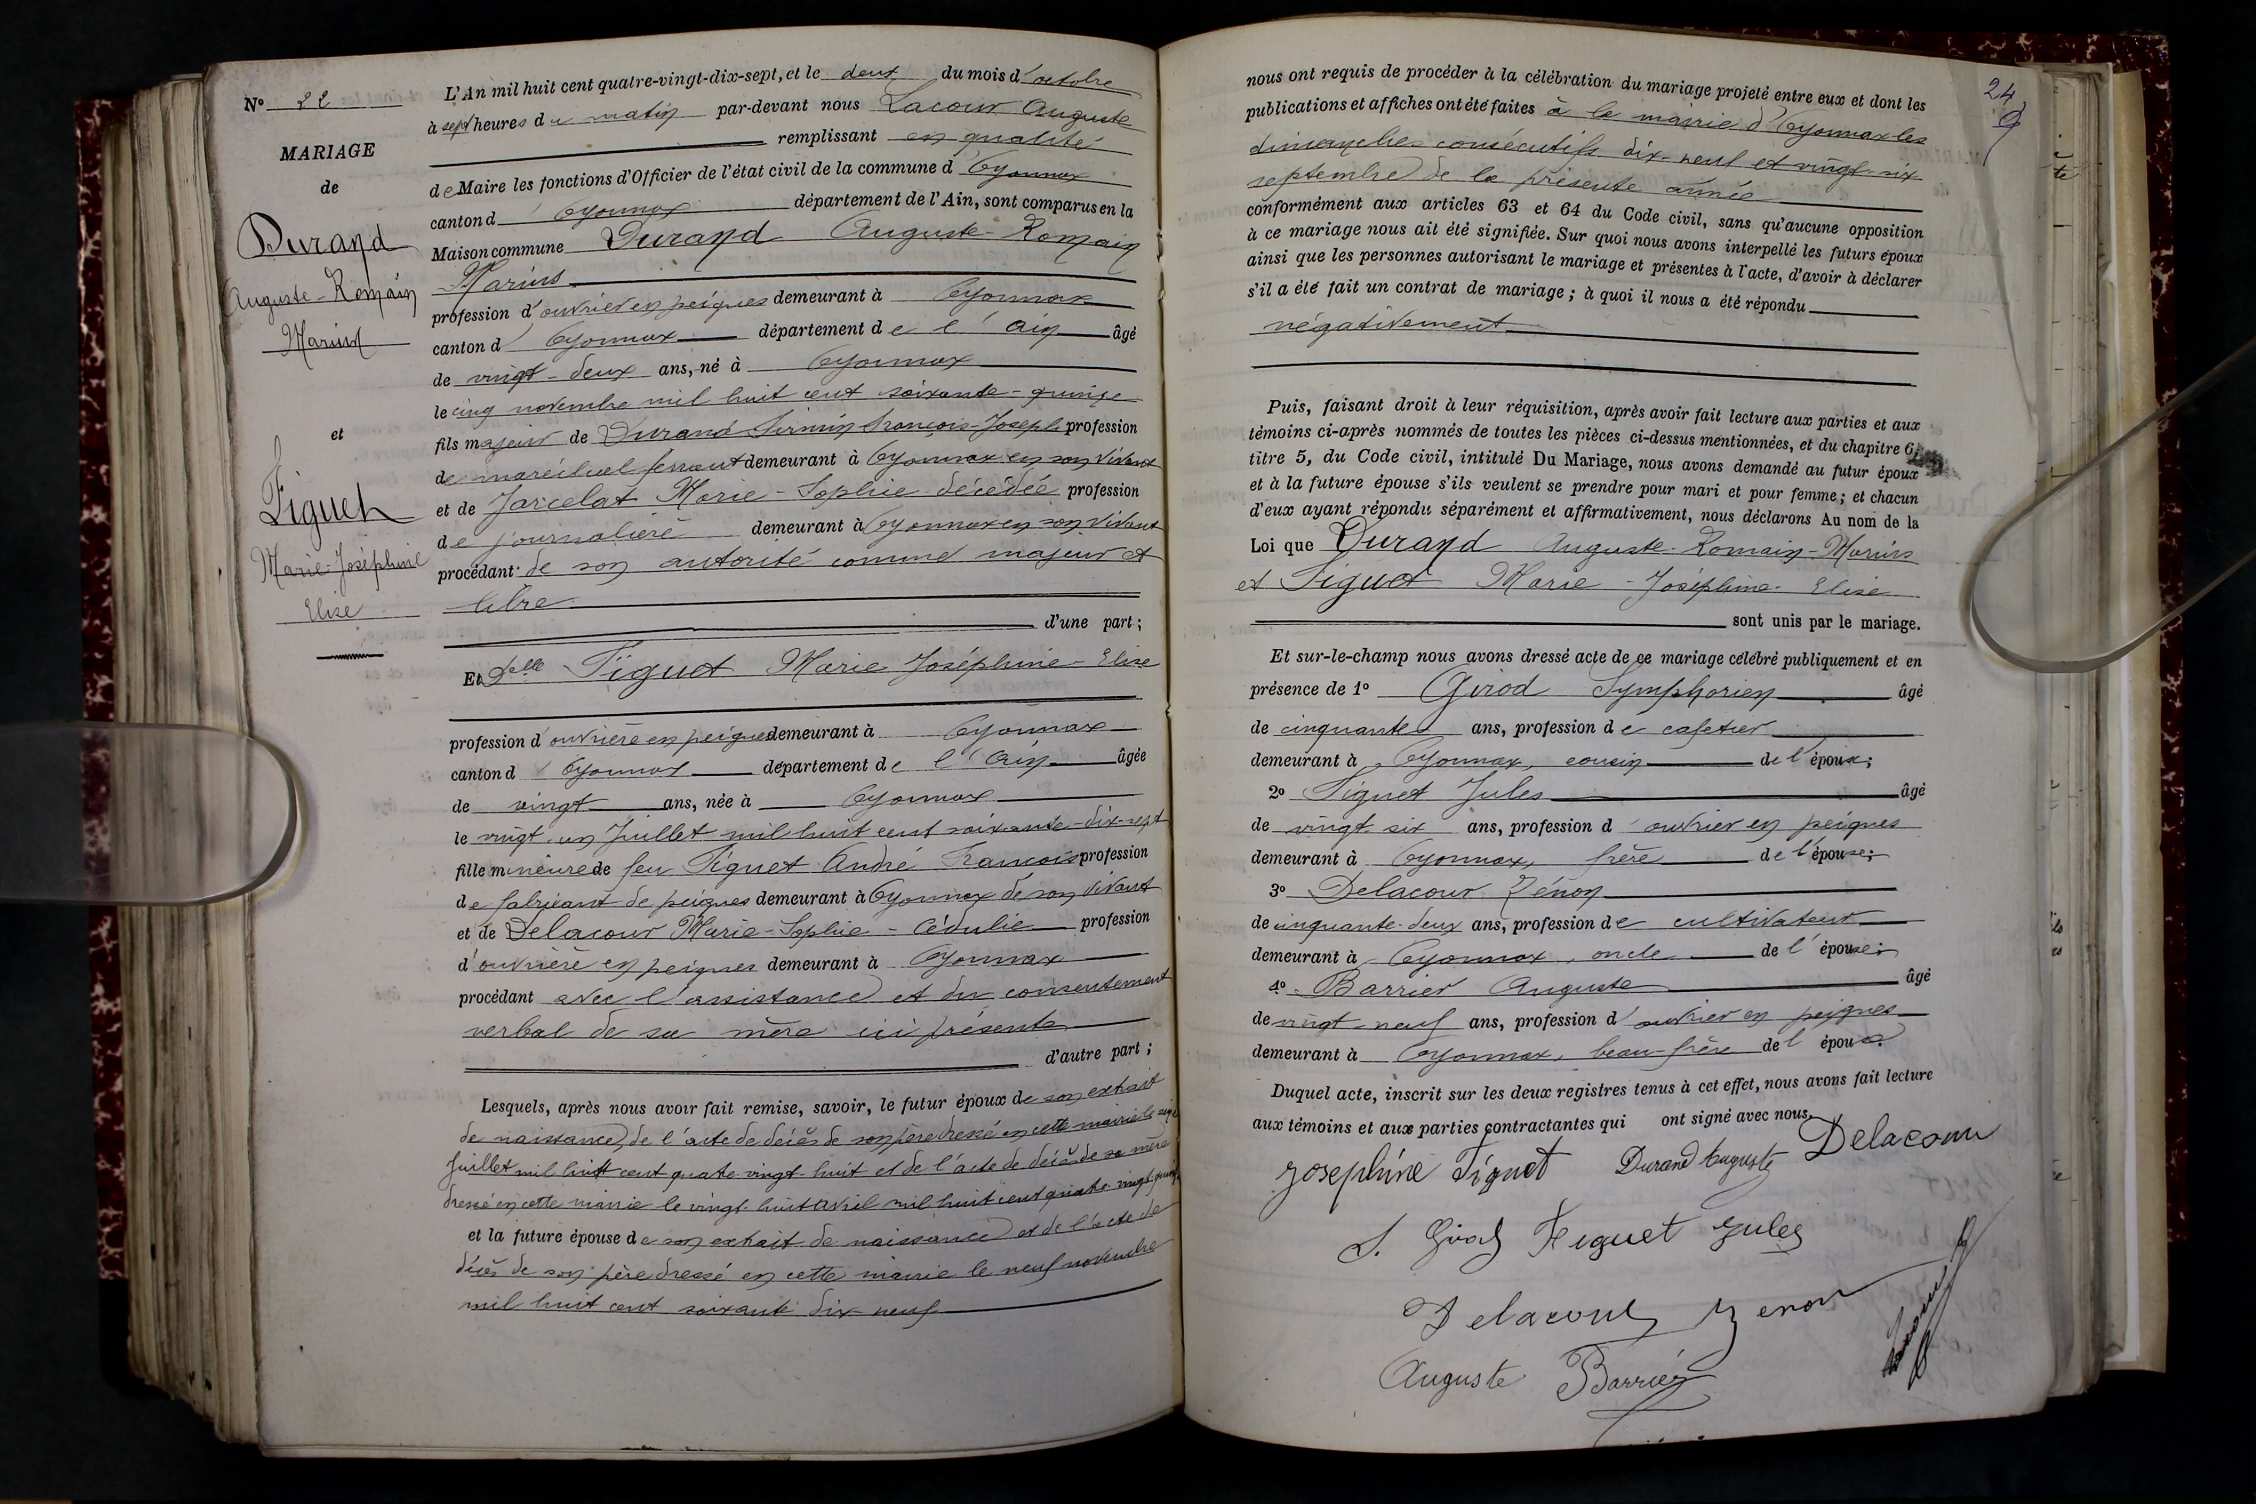 N° 22
MARIAGE
de
Durand
Auguste-Romain
Marius
et
Figuet
Marie-Joséphine
Elise
L'An mil huit cent quatre-vingt-dix-sept, et le deux du mois d'octobre
à sept heures du matin par-devant nous Lacour Auguste
remplissant en qualité
de Maire les fonctions d'Officier de l'état civil de la commune d'Oyonnax
canton d'Oyonnax département de l'Ain, sont comparus en la
Maison commune Durand Auguste-Romain
Marius
profession d'ouvrier en peignes demeurant à Oyonnax
canton d'Oyonnax département de l'Ain âgé
de vingt-deux ans, né à Oyonnax
le cinq novembre mil huit cent soixante-quinze
fils majeur de Durand Firmin François-Joseph profession
de maréchal ferrant demeurant à Oyonnax en son vivant
et de Jarcelat Marie-Sophie décédée profession
de journalière demeurant à Oyonnax en son vivant
procédant de son autorité comme majeur et
libre
d'une part;
Et Delle Figuet Marie Joséphine-Elise
profession d'ouvrière en peignes demeurant à Oyonnax
canton d'Oyonnax département de l'Ain âgée
de vingt ans, née à Oyonnax
le vingt-un Juillet mil huit cent soixante-dix-sept
fille mineure de feu Figuet André François profession
de fabricant de peignes demeurant à Oyonnax de son vivant
et de Delacour Marie-Sophie-Cédulie profession
d'ouvrière en peignes demeurant à Oyonnax
procédant avec l'assistance et du consentement
verbal de sa mère ici présente
d'autre part;
Lesquels, après nous avoir fait remise, savoir, le futur époux de son extrait
de naissance, de l'acte de décès de son père dressé en cette mairie le
Juillet mil huit cent quatre-vingt-huit et de l'acte de décès de sa mère
dressé en cette mairie le vingt-huit avril mil huit cent quatre-vingt
et la future épouse de son extrait de naissance et de l'acte de
décès de son père dressé en cette mairie le neuf novembre
mil huit cent soixante dix-neuf
24
nous ont requis de procéder à la célébration du mariage projeté entre eux et dont les
publications et affiches ont été faites à la mairie d'Oyonnax les
dimanches consécutifs dix-neuf et vingt-six
septembre de la présente année
conformément aux articles 63 et 64 du Code civil, sans qu'aucune opposition
à ce mariage nous ait été signifiée. Sur quoi nous avons interpellé les futurs époux
ainsi que les personnes autorisant le mariage et présentes à l'acte, d'avoir à déclarer
s'il a été fait un contrat de mariage; à quoi il nous a été répondu
négativement
Puis, faisant droit à leur réquisition, après avoir fait lecture aux parties et aux
témoins ci-après nommés de toutes les pièces ci-dessus mentionnées, et du chapitre 6,
titre 5, du Code civil, intitulé Du Mariage, nous avons demandé au futur époux
et à la future épouse s'ils veulent se prendre pour mari et pour femme; et chacun
d'eux ayant répondu séparément et affirmativement, nous déclarons Au nom de la
Loi que Durand Auguste-Romain-Marius
et Figuet Marie-Joséphine-Elise
sont unis par le mariage.
Et sur-le-champ nous avons dressé acte de ce mariage célébré publiquement et en
présence de 1° Girod Symphorien âgé
de cinquante ans, profession de cafetier
demeurant à Oyonnax, cousin de l'époux;
2° Figuet Jules âgé
de vingt-six ans, profession d'ouvrier en peignes
demeurant à Oyonnax, frère de l'épouse;
3° Delacour Zénon
de cinquante-deux ans, profession de cultivateur
demeurant à Oyonnax, oncle de l'épouse;
4° Barrier Auguste âgé
de vingt-neuf ans, profession d'ouvrier en peignes
demeurant à Oyonnax, beau-frère de l'époux.
Duquel acte, inscrit sur les deux registres tenus à cet effet, nous avons fait lecture
aux témoins et aux parties contractantes qui ont signé avec nous.
Josephine Figuet Durand Auguste Delacour
S. Girod Figuet Jules
Delacour Zenon
Auguste Barrier